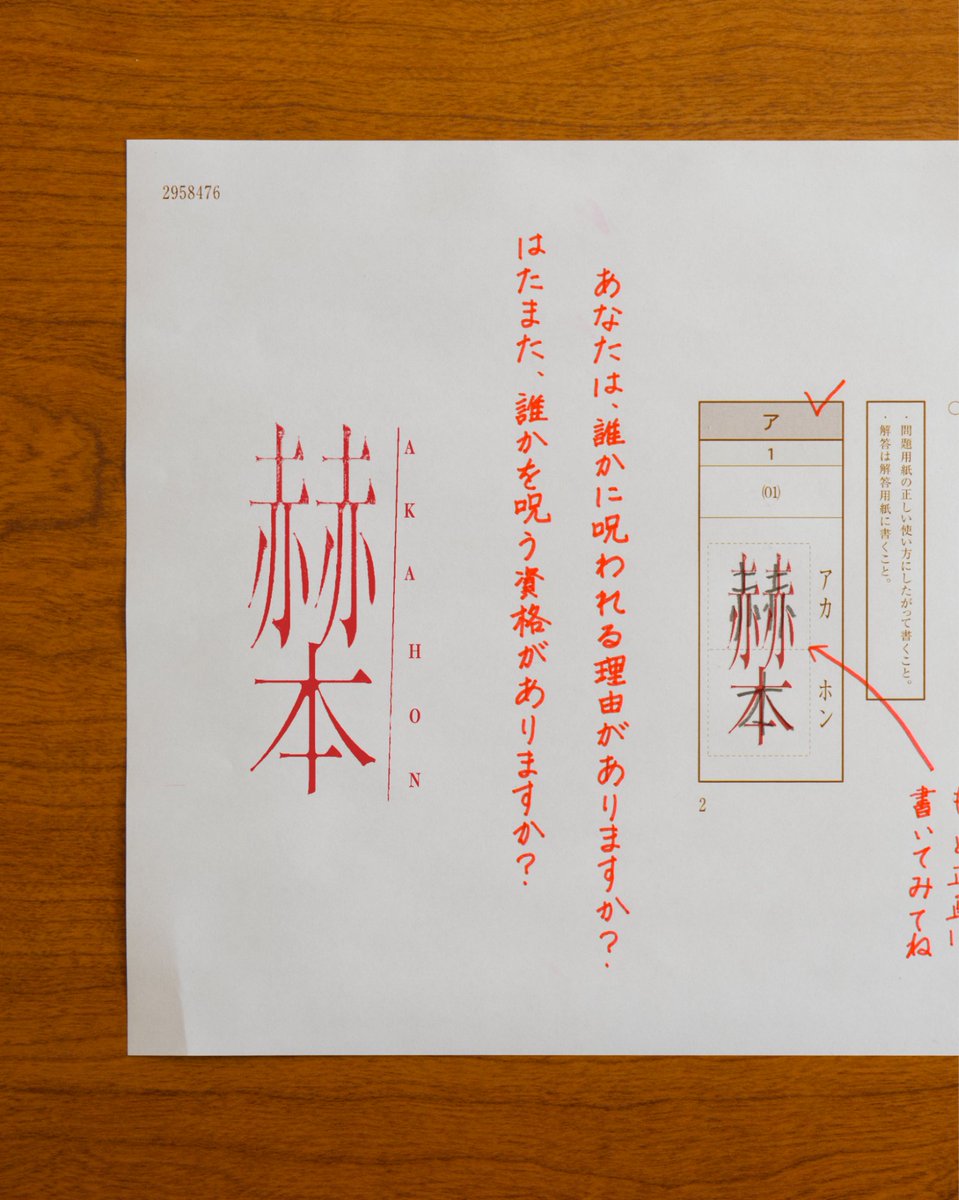 2958476
・問題用紙の正しい使い方にしたがって書くこと。
・解答は解答用紙に書くこと。
書いてみてね
ア
1
(01)
アカ ホン
赫本
2
あなたは、誰かに呪われる理由がありますか？
はたまた、誰かを呪う資格がありますか？
AKAHON
赫本